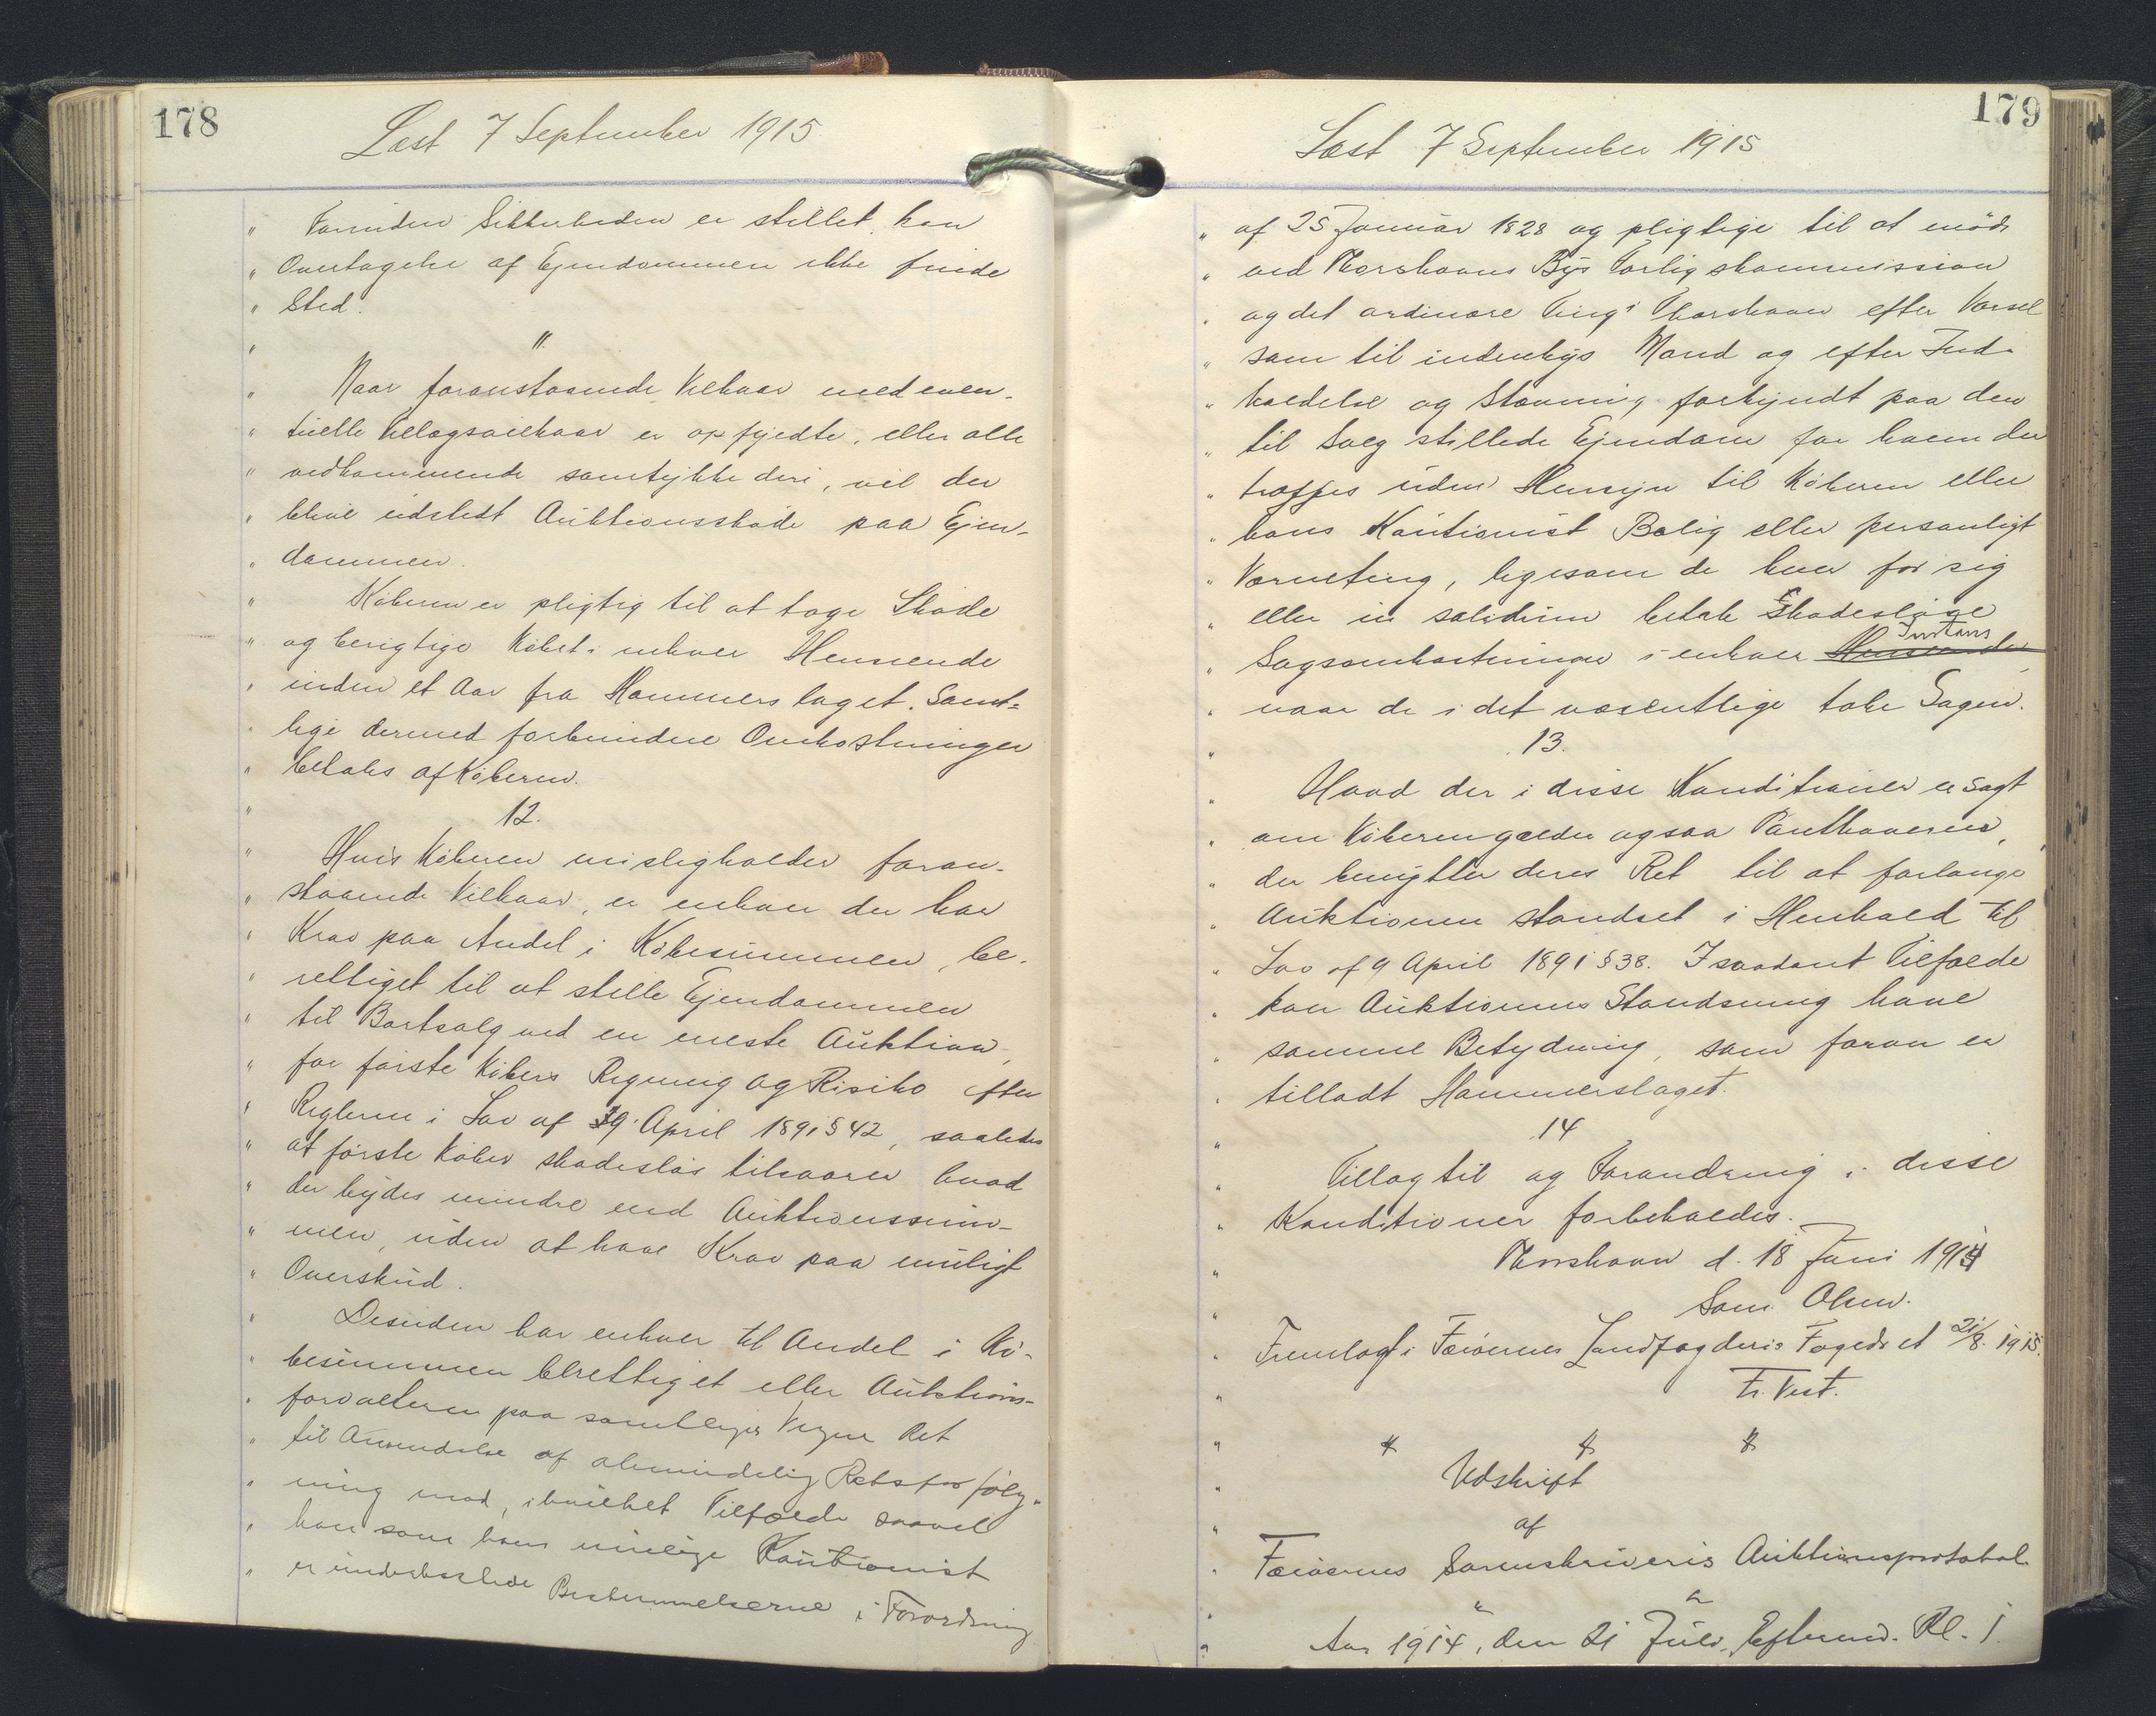 178
Læst 7 September 1915
" Forinden Sikkerheden er stillet kan
" Overtagelse af Ejendommen ikke finde
" Sted.
" 11.
" Naar foranstaaende Vilkaar med even-
" tuelle Tillægsvilkaar er opfyldte, eller alle
" vedkommende samtykke deri, vil der
" blive udstedt Auktionsskøde paa Ejen-
" dommen.
" Køberen er pligtig til at tage Skøde
" og berigtige Købet i enhver Henseende
" inden et Aar fra Hammerslaget. Samt-
" lige dermed forbundne Omkostninger
" betales af Køberen.
" 12.
" Hvis Køberen misligholder foran-
" staaende Vilkaar, er enhver der har
" Krav paa Andel i Købesummen, be-
" rettiget til at stille Ejendommen
" til Bortsalg ved en eneste Auktion,
" for første Købers Regning og Risiko efter
" Reglerne i Lov af 29 April 1891 § 42, saaledes
" at første Køber skadesløs tilsvarer hvad
" der bydes mindre end Auktionssum-
" men, uden at have Krav paa muligt
" Overskud.
" Desuden har enhver til Andel i Kø-
" besummen berettiget eller Auktions-
" forvalteren paa samtliges Vegne Ret
" til Anvendelse af almindelig Retsforfølg-
" ning mod, i hvilket Tilfælde saavel
" han som hans mulige Kautionist
" er underkastede Bestemmelserne i Forordning
179
Læst 7 September 1915
" af 25 Januar 1828 og pligtige til at møde
" ved Thorshavns Bys Forligskommission
" og det ordinære Ting i Thorshavn efter Varsel
" som til indenbys Mand og efter Ind-
" kaldelse og Stævning forkyndt paa den
" til Salg stillede Ejendom for hvem der
" træffes uden Hensyn til Køberen eller
" hans Kautionist Bolig eller personligt
" Værneting, ligesom de hver for sig
" eller in solidum betale skadesløse
" Sagsomkostninger i enhver Henseende Instans
" naar de i det væsentlige tabe Sagen.
" 13.
" Hvad der i disse Konditioner er sagt
" om Køberen gælder ogsaa Panthaverne,
" der benytter deres Ret til at forlange
" Auktionen standset i Henhold til
" Lov af 9 April 1891 § 38. I saadant Tilfælde
" kan Auktionens Standsning have
" samme Betydning, som foran er
" tilladt Hammerslaget.
" 14
" Tillæg til og Forandring i disse
" Konditioner forbeholdes.
" Thorshavn d. 18 Juni 1914
" Sam. Olsen.
" Fremlagt i Færøernes Landfogderis Fogedret 21/8. 1915.
" Tr. Vest.
"
" Udskrift
" af
" Færøernes Sorenskriveris Auktionsprotokol.
" Aar 1914, den 21 Juli, Efterm. Kl. 1.